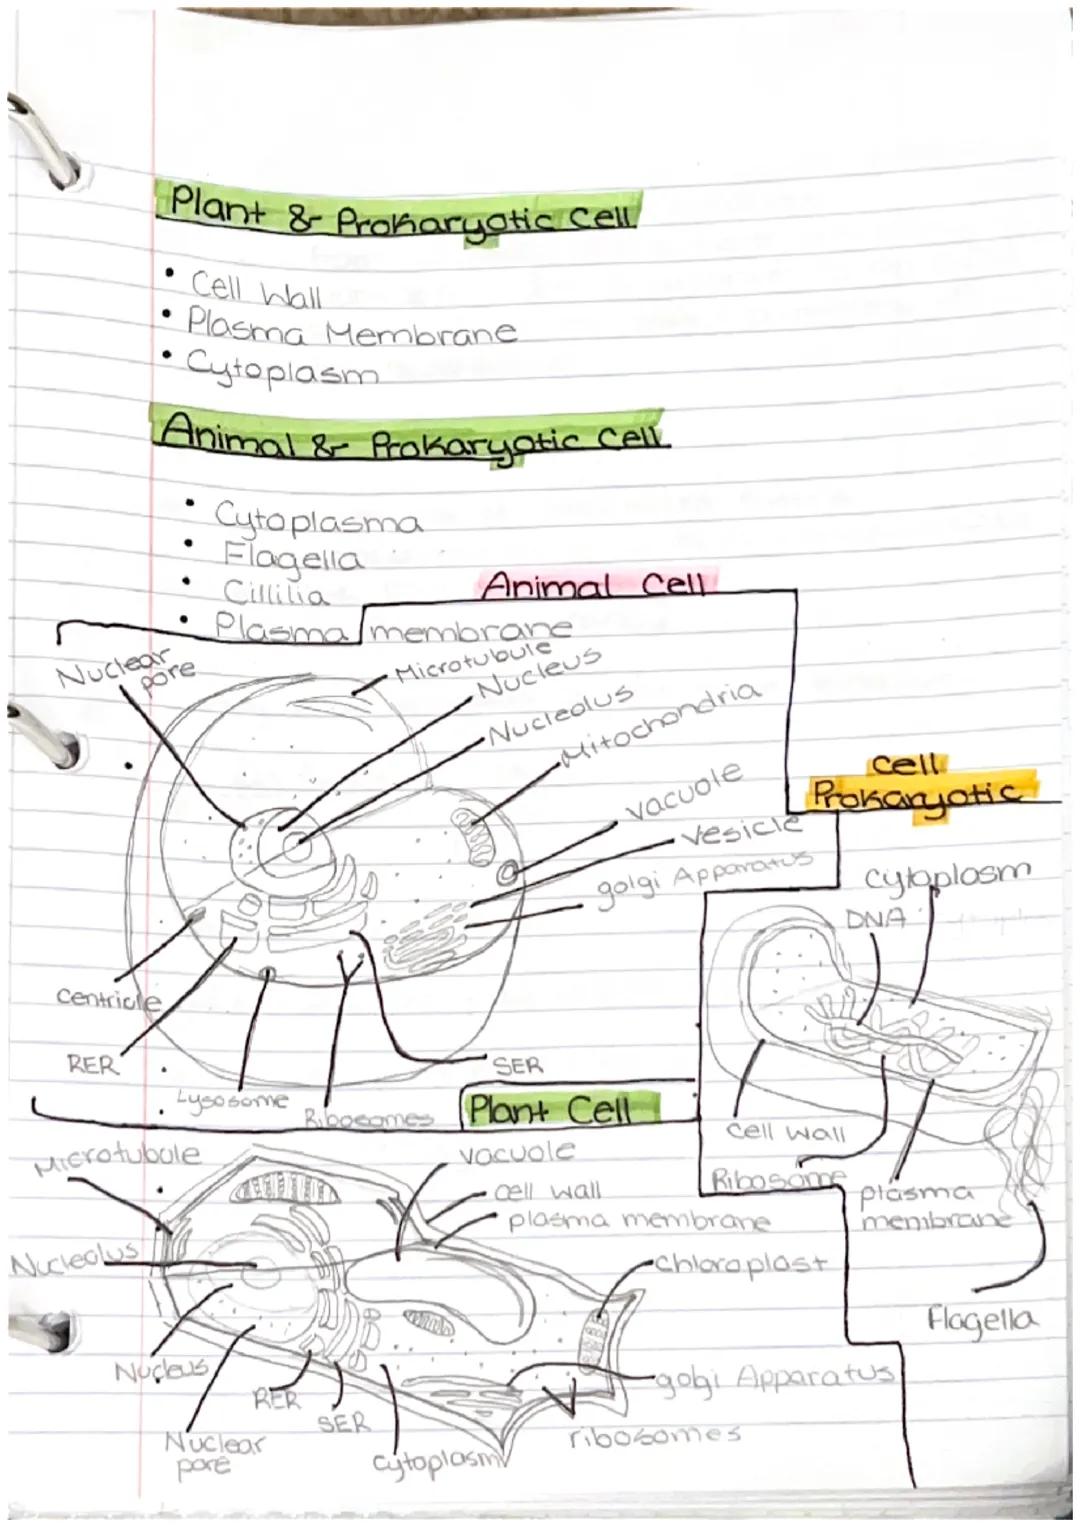 Plant & Prokaryotic Cell
• Cell Wall
• Plasma Membrane
• Cytoplasm
Animal & Prokaryotic Cell
• Cytoplasma
• Flagella
• Cillilia
• Plasma membrane
Animal Cell
Nuclear
pore
Microtubule
Nucleus
Nucleolus
Mitochondria
vacuole
vesicle
golgi Apparatus
Centriole
RER
Lysosome
Ribosomes
SER
Cell
Prokaryotic
Cytoplasm
DNA
Cell wall
Ribosome
plasma
membrane
Flagella
Plant Cell
Microtubule
vacuole
cell wall
plasma membrane
Nucleolus
chloroplast
Nucleus
RER
SER
golgi Apparatus
Nuclear
pore
cytoplasm
ribosomes